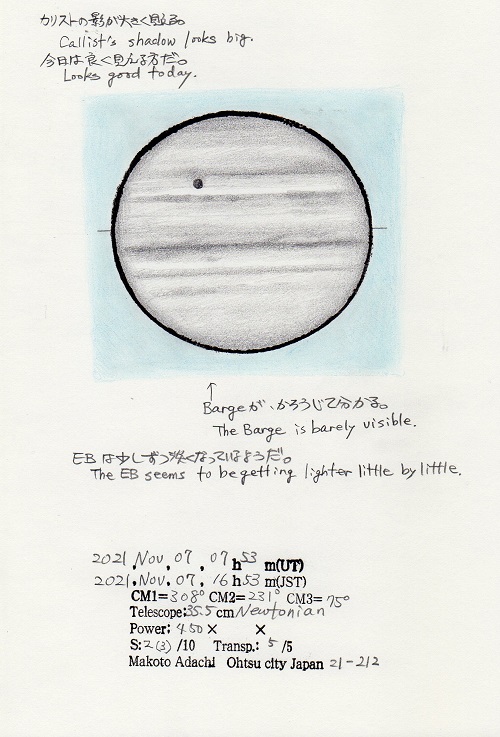 カリストの影が大きく見える。
Callist's shadow looks big.
今日は良く見える方だ。
Looks good today.
↑
Bargeが、かろうじて分かる。
The Barge is barely visible.
EBは少しずつ淡くなっているようだ。
The EB seems to be getting lighter little by little.
2021, Nov, 07, 07 h 53 m(UT)
2021, Nov, 07, 16 h 53 m(JST)
CM1=308° CM2=231° CM3=75°
Telescope: 35.5 cm Newtonian
Power: 450 × ×
S: 2(3) /10 Transp.: 5 /5
Makoto Adachi Ohtsu city Japan 21-212